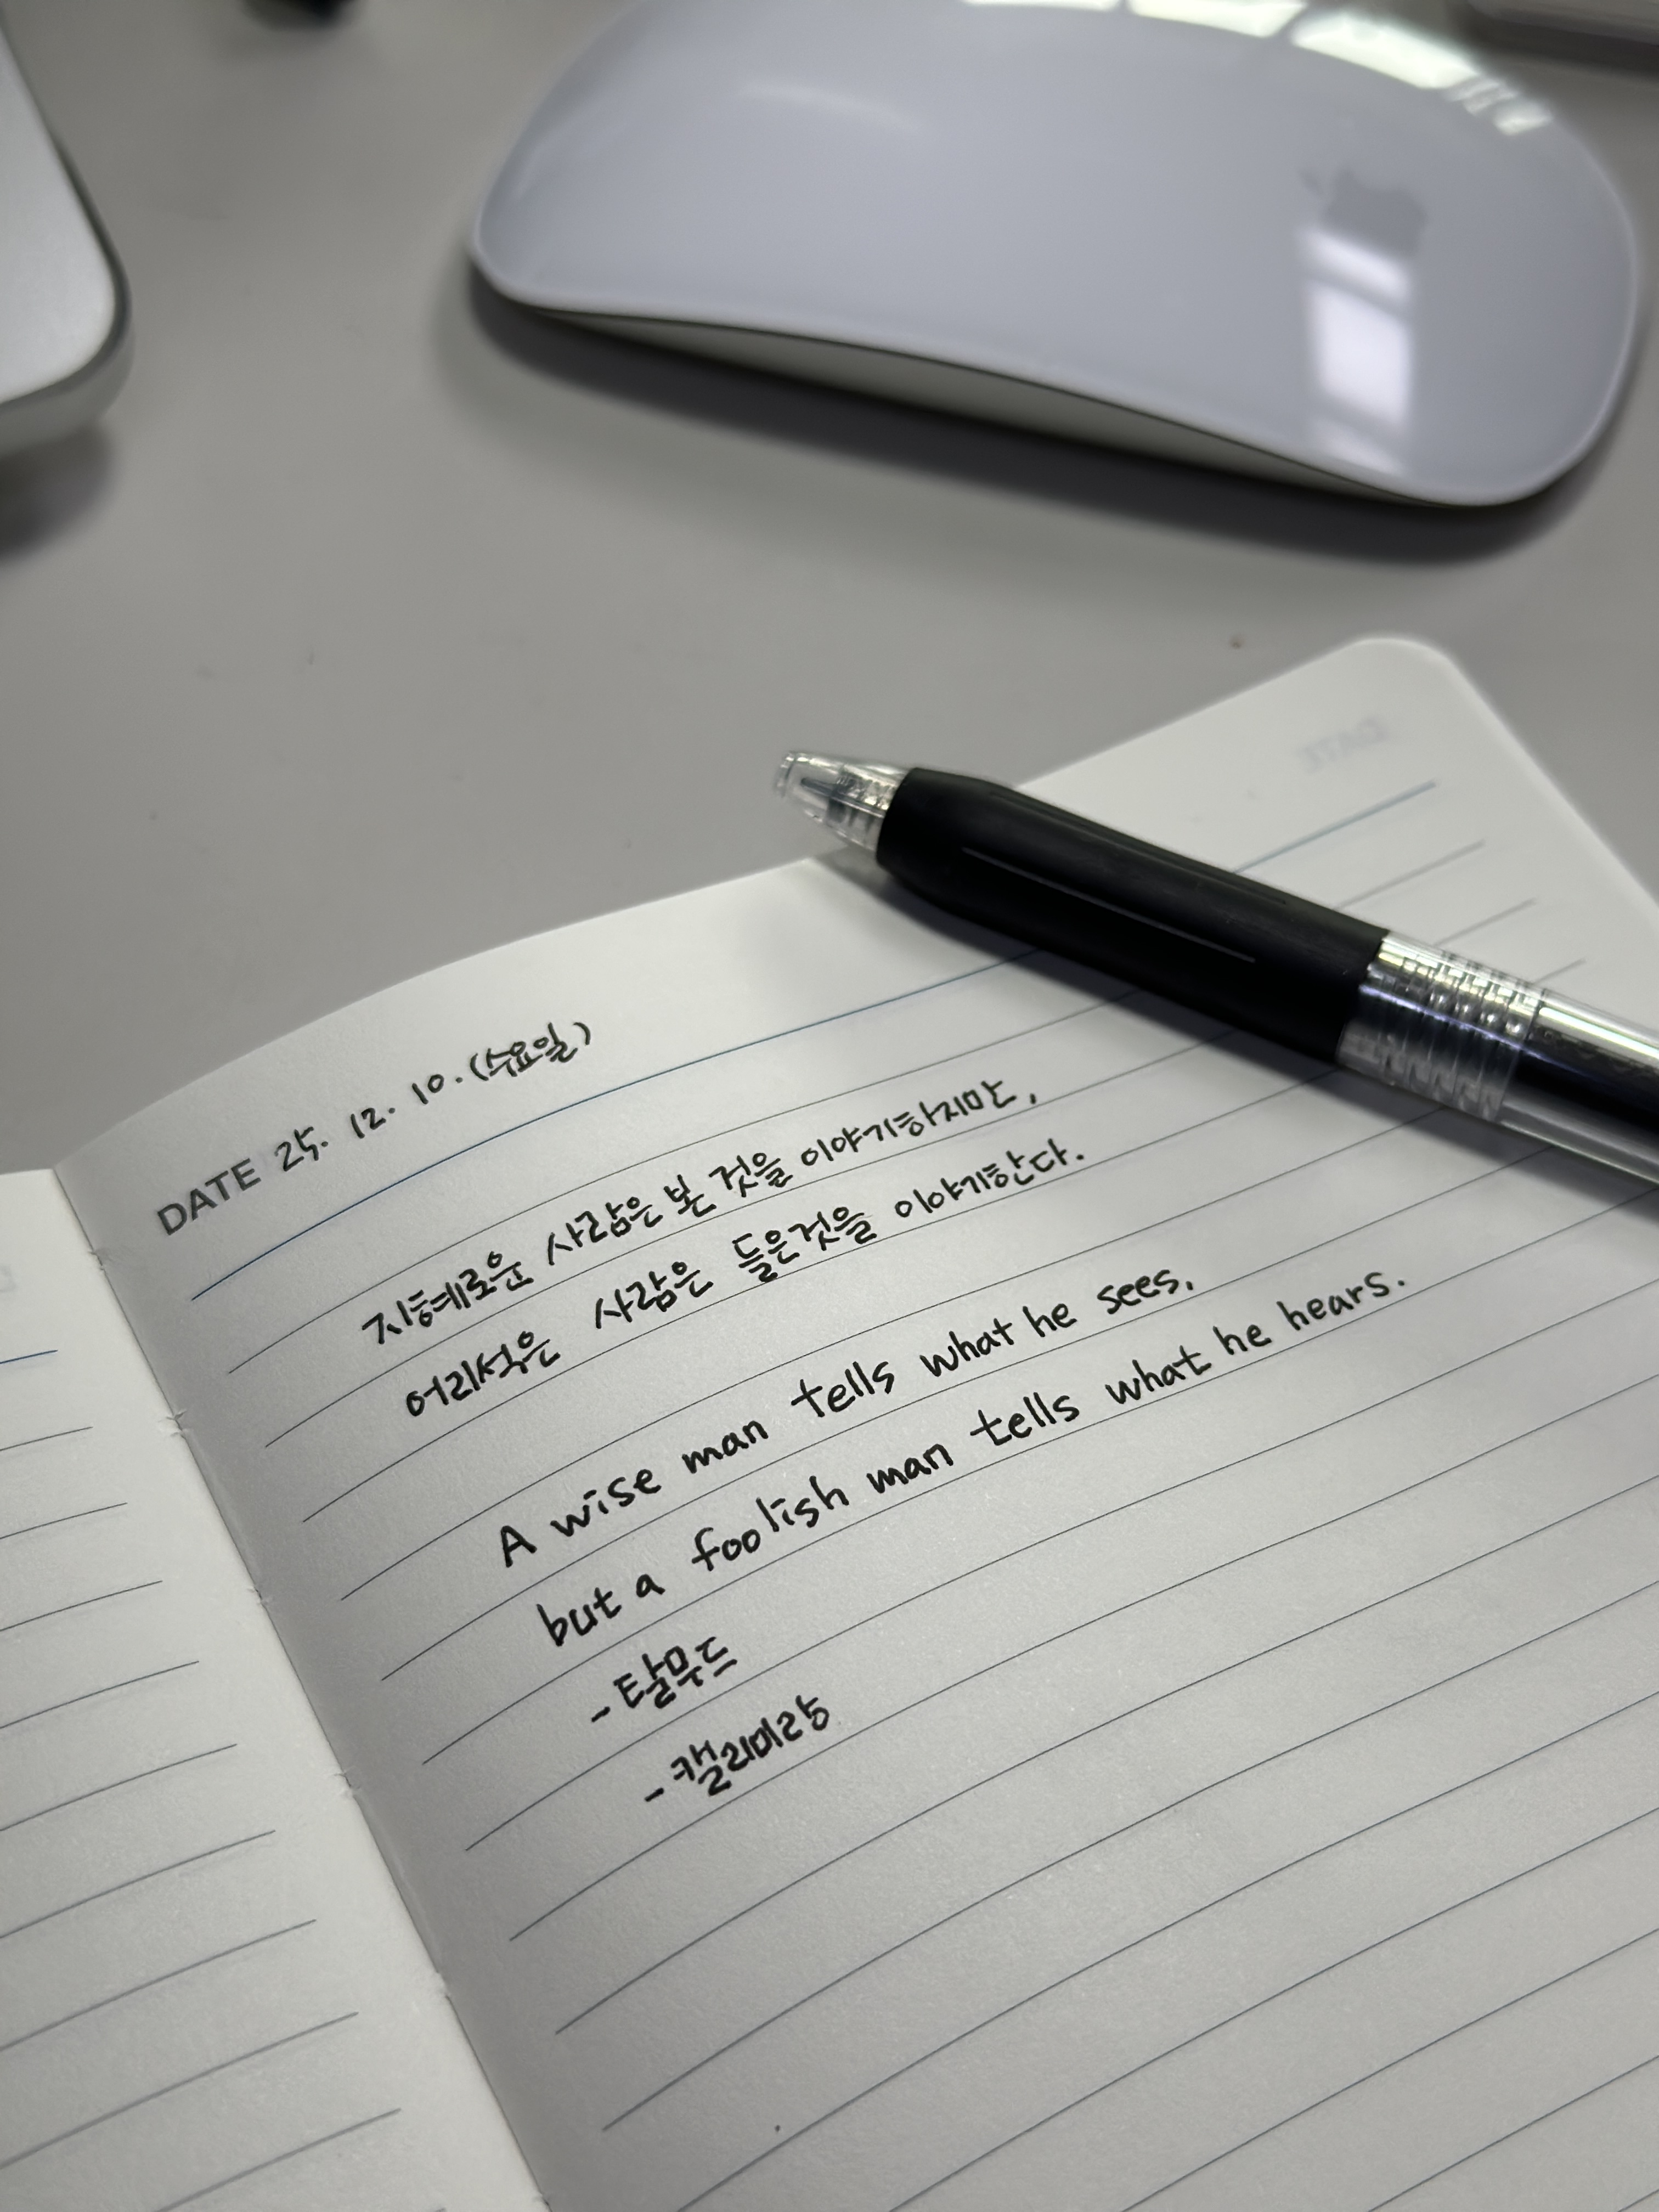 DATE 25. 12. 10. (수요일)
지혜로운 사람은 본 것을 이야기하지만,
어리석은 사람은 들은것을 이야기한다.
A wise man tells what he sees,
but a foolish man tells what he hears.
- 탈무드
- 캘리미랑